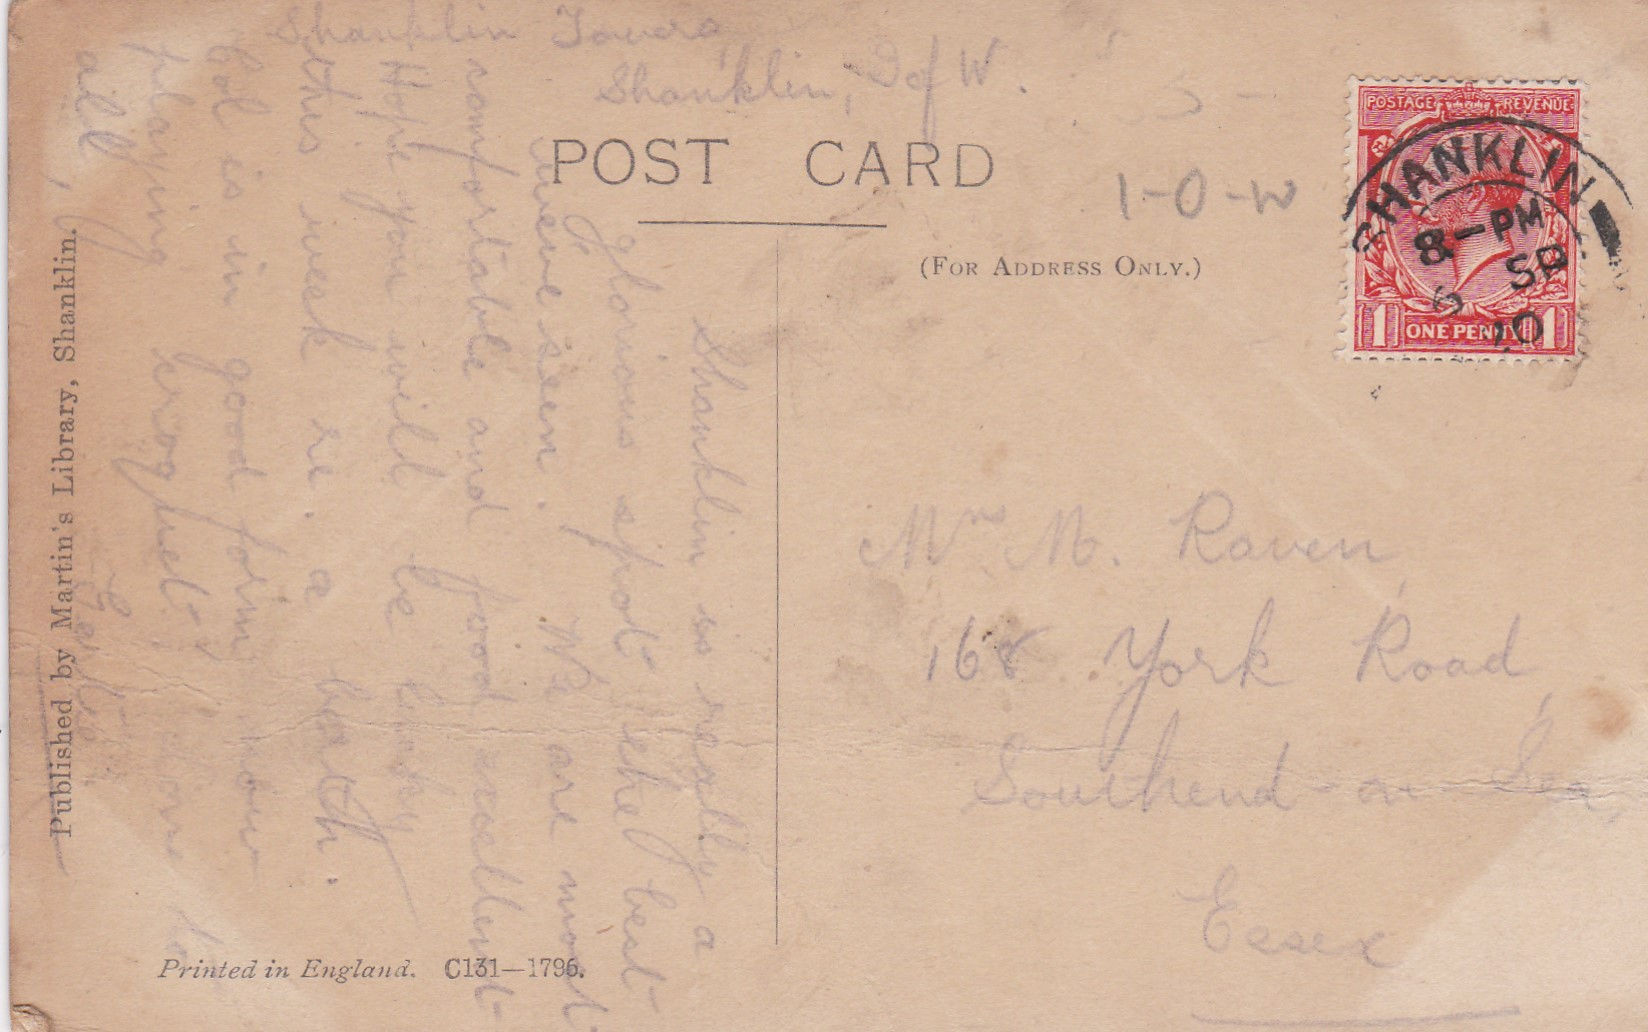 Shanklin Towers,
Shanklin, I of W.
POST CARD
(FOR ADDRESS ONLY.)
1-0-W
POSTAGE REVENUE
1 ONE PENNY 1
SHANKLIN
8-PM
6 SP
20
Shanklin is really a
glorious spot the best
we've seen. We are most
comfortable and food excellent
Hope you will be lucky
this week re. a bath.
Col is in good form now
playing croquet. Love to
all,
Gertie
Mrs M. Raven,
168 York Road,
Southend-on-Sea,
Essex
Published by Martin's Library, Shanklin.
Printed in England. C131—1796.